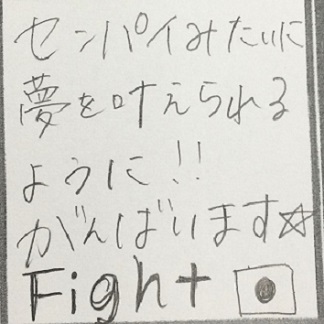 センパイみたいに
夢を叶えられる
ように!!
がんばいます☆
Fight